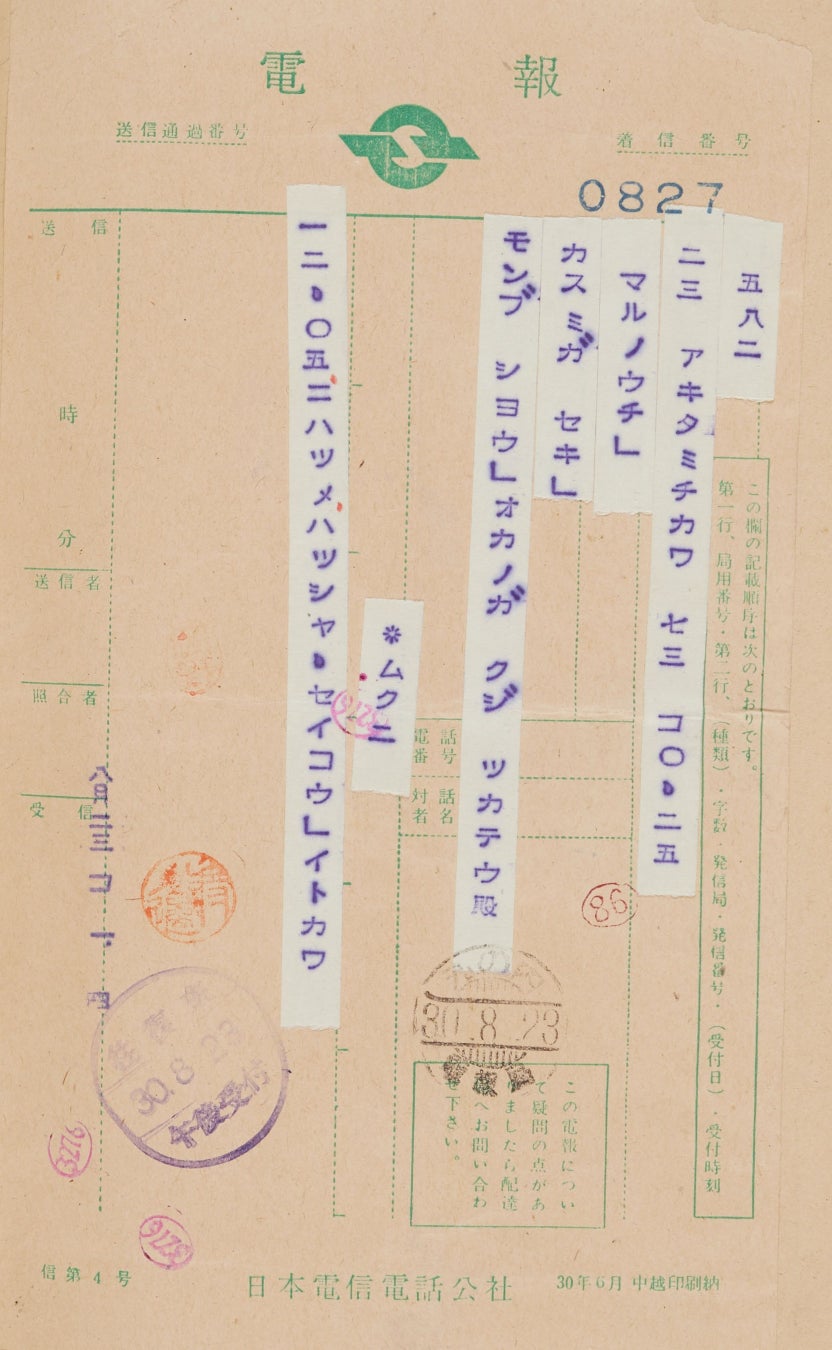 電報
送信通過番号
着信番号
0827
五八二
二三 アキタミチカワ 七三 コ〇、二五
マルノウチ」
カスミガ セキ」
モンブ シヨウ」オカノガ クジ ツカテウ殿
*ムクニ
一二、〇五ニハツメハツシヤ、セイコウ」イトカワ
この欄の記載順序は次のとおりです。
第一行、局用番号・第二行、(種類)・字数・発信局・発信番号・(受付日)・受付時刻
送信
時
分
送信者
照合者
受信
電話番号
対話者名
86
30.8.23
30.8.23
午後受付
この電報につい
て疑問の点があ
りましたら配達
へお問い合わ
せ下さい。
3276
3276
3276
信第4号
日本電信電話公社
30年6月 中越印刷納